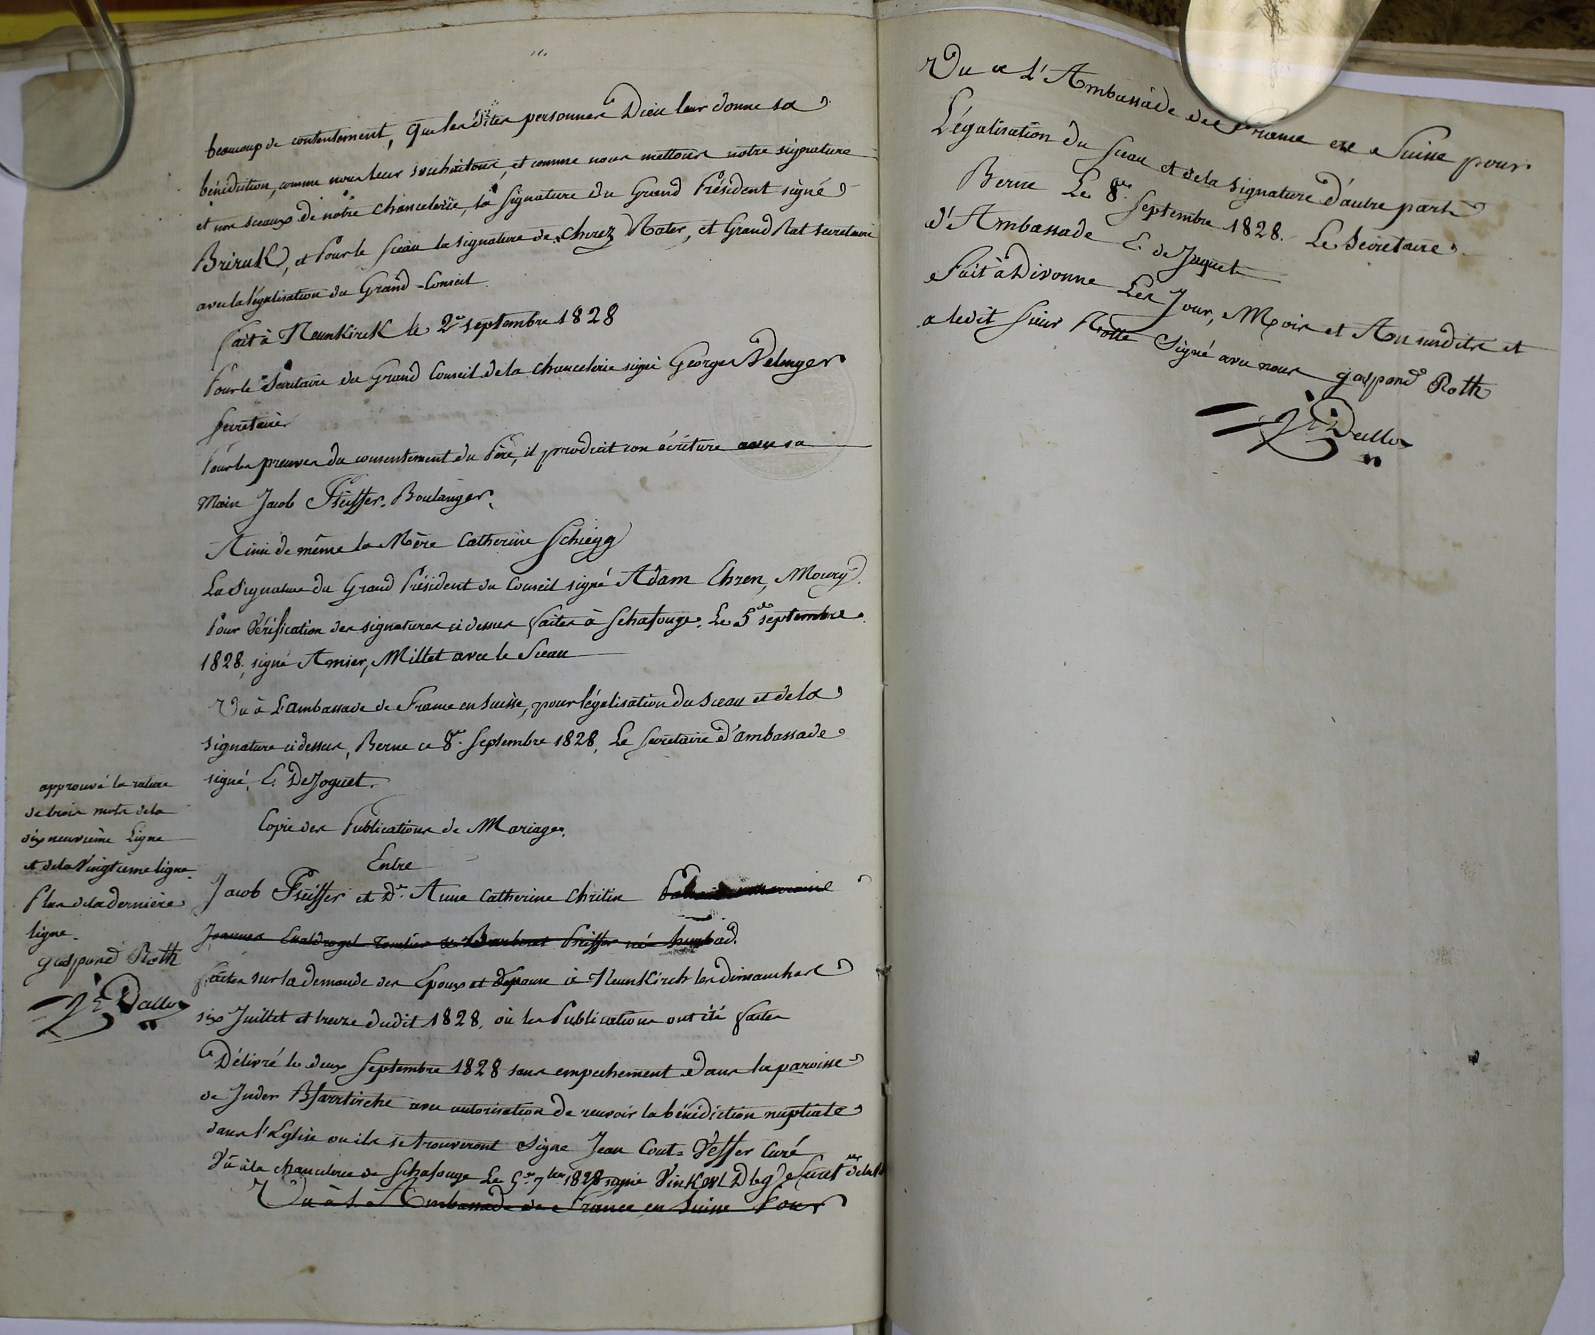 beaucoup de contentement, que les dites personnes Dieu leur donne sa
bénédiction, comme nous leur souhaitons, et comme nous mettons notre signature
et nos sceaux de nôtre chancelerie, la signature du Grand Président signé
et Pour le sceau la signature de Rater, et Grand Rat secretaire
avec la légalisation du Grand-Conseil.
fait à Neunkirck le 2e septembre 1828
Pour le Sécrétaire du Grand Conseil de la chancelerie signé George
secretaire
Pour les preuves du consentement du Père, il produit son écriture avec sa
Main Jacob Pfeiffer Boulanger.
Ainsi de même la Mère Catherine Schiegg
La Signature du Grand Président du Conseil signé Adam Ehren, Moury
Pour Vérification des signatures ci dessus faites à Schafouge. Le 5 septembre
1828, signé Amier, Millet avec le Sceau
Vu à L'ambassade de France en Suisse, pour légalisation du sceau et de la
signature ci dessus, Berne ce 8e. Septembre 1828, Le Secretaire d'ambassade
signé, E. De Joguet.
Copie des Publications de Mariage.
Entre
Jacob Pfeiffer et De. Anne Catherine Chritin
Pfeiffer née
faites sur la demande des Epoux et Epouse à Neunkirch les dimanches
six Juillet et treize dudit 1828, où les Publications ont été faites
Délivré le deux Septembre 1828 sans empechement dans la paroisse
de avec autorisation de recevoir la bénédiction nuptiale
dans l'Eglise ou ils se trouveront Signe Jean Veffer Curé
Vû à la chancelerie de Schafouge Le 5e 7bre 1828 signé
Vu à L'Ambassade de France en Suisse Pour
approuvé la rature
de trois mots de la
dix neuvième Ligne
et de la Vingtieme ligne.
Plus de la derniere
ligne.
gaspard Roth
Dallo
Vu a L'Ambassade de France en Suisse pour
Légalisation du sceau et de la signature d'autre part
Berne Le 8e. Septembre 1828. Le Sécrétaire
d'Ambassade E. de Joguet
Fait à Divonne Les Jour, Mois et An susdits et
a ledit sieur Rotte Signé avec nous gaspard Roth
Dallo